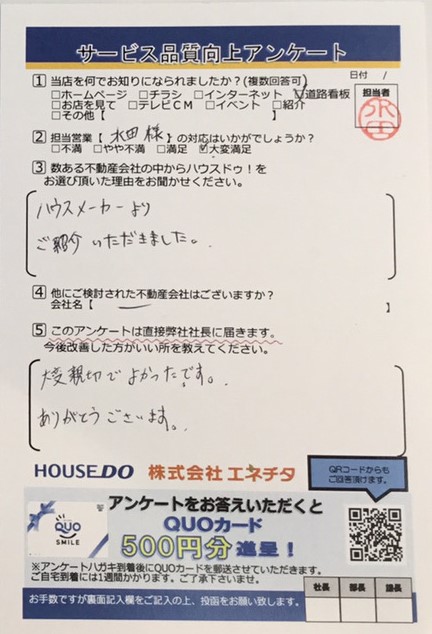 サービス品質向上アンケート
日付 /
1 当店を何でお知りになられましたか？(複数回答可)
□ホームページ □チラシ □インターネット ☑道路看板
□お店を見て □テレビCM □イベント □紹介
□その他【 】
担当者
水田
2 担当営業【 水田 様 】の対応はいかがでしょうか？
□不満 □やや不満 □満足 ☑大変満足
3 数ある不動産会社の中からハウスドゥ！を
お選び頂いた理由をお聞かせください。
ハウスメーカーより
ご紹介いただきました。
4 他にご検討された不動産会社はございますか？
会社名【 】
5 このアンケートは直接弊社社長に届きます。
今後改善した方がいい所を教えてください。
大変親切でよかったです。
ありがとうございます。
HOUSEDO 株式会社 エネチタ
QRコードからも
ご回答頂けます。
QUO
SMILE
アンケートをお答えいただくと
QUOカード
500円分 進呈！
※アンケートハガキ到着後にQUOカードを郵送させていただきます。
ご自宅到着には1週間かかります。ご了承下さいませ。
社長 部長 課長
お手数ですが裏面記入欄をご記入の上、投函をお願い致します。